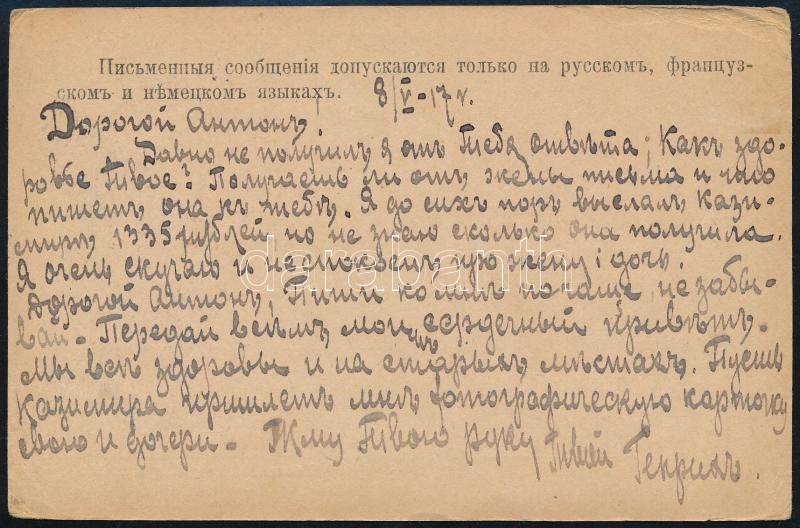 Письменныя сообщенія допускаются только на русскомъ, француз-
скомъ и нѣмецкомъ языкахъ. 8/V-17 г.
Дорогой Антонъ,
Давно не получилъ я отъ Тебя отвѣта; Какъ здо-
ровье Твое? Получаешь ли отъ жены письма и что
пишетъ она къ тебѣ. Я до сихъ поръ выслалъ Кази-
миръ 1335 рублей но не знаю сколько она получила.
Я очень скучаю и неспокоенъ про жену і дочь.
Дорогой Антонъ, Пиши ко мнѣ почаще, не забы-
вай - Передай всѣмъ мой сердечный привѣтъ.
Мы всѣ здоровы и на старыхъ мѣстахъ. Пусть
Казимира пришлетъ мнѣ фотографическую карточку
свою и дочери - Жму Твою руку Твой Генрихъ.
darabanth